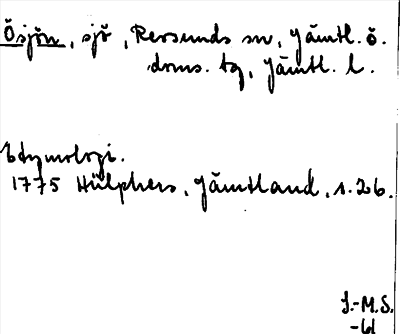 Ösjön, sjö, Revsunds sn, Jämtl. ö.
doms. tg, Jämtl. l.
Etymologi.
1775 Hülphers, Jämtland, s. 26.
J.-M.S.
-61